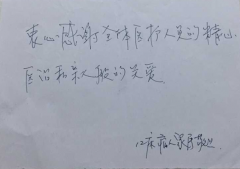 衷心感谢全体医护人员的精心
医治和亲人般的关爱
12床病人